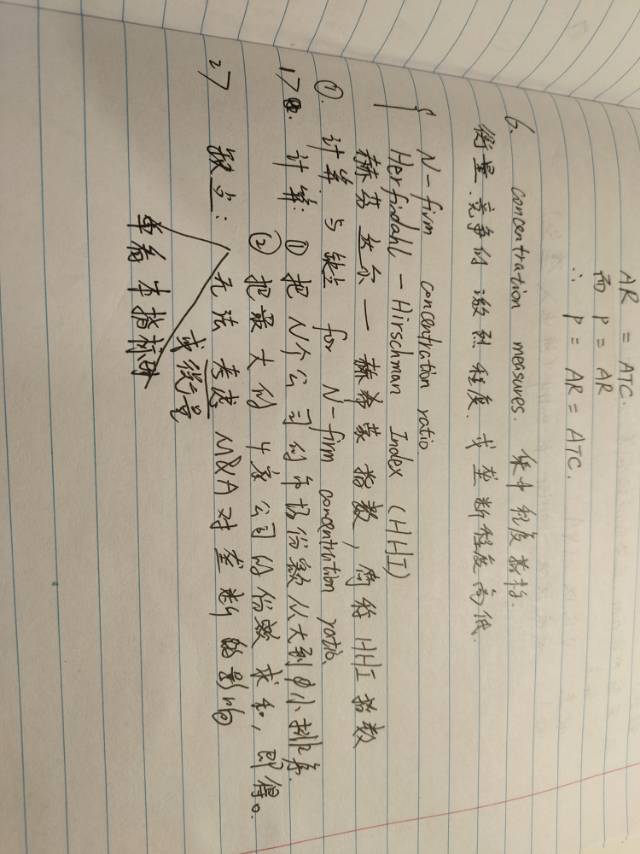 AR = ATC.
而 P = AR
∴ P = AR = ATC.
6. concentration measures. 集中程度指标.
衡量.竞争的激烈程度.或垄断程度高低.
{ N-firm concentration ratio
Herfindahl-Hirschman Index (HHI)
赫芬达尔一赫希曼指数,简称HHI指数
①. 计算与缺点 for N-firm concentration ratio.
1> 计算: ① 把N个公司的市场份额从大到小排序.
② 把最大的4家公司的份数求和,即得。
2> 缺点: 无法考虑M&A对垄断的影响
或衡量
单看本指标时